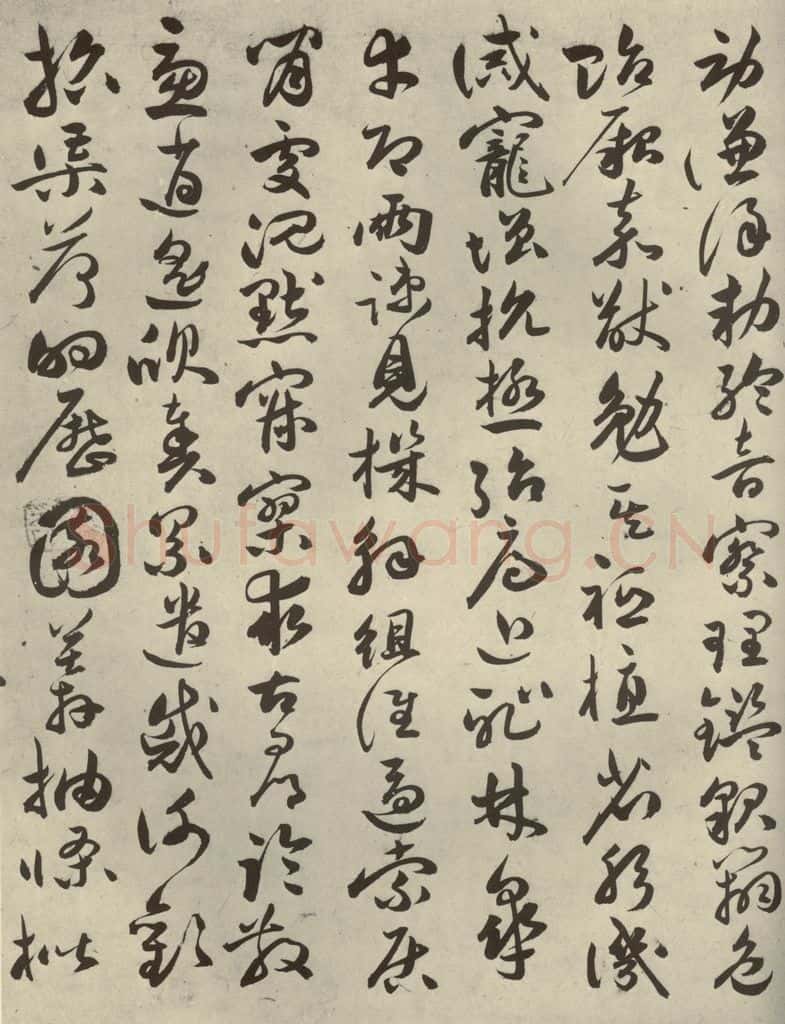 勞謙謹勅聆音察理鑑貌辨色
貽厥嘉猷勉其祗植省躬譏
誡寵增抗極殆辱近恥林皋
幸即兩疏見機解組誰逼索居
閑處沉默寂寥求古尋論散
慮逍遙欣奏累遣慼謝歡
招渠荷的歷園莽抽條枇
Shufawang.CN